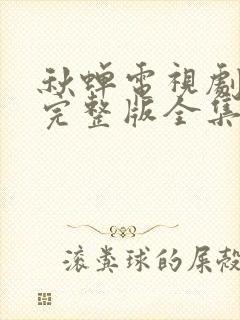 秋蝉電視劇
完整版全集
滚粪球的屎殼